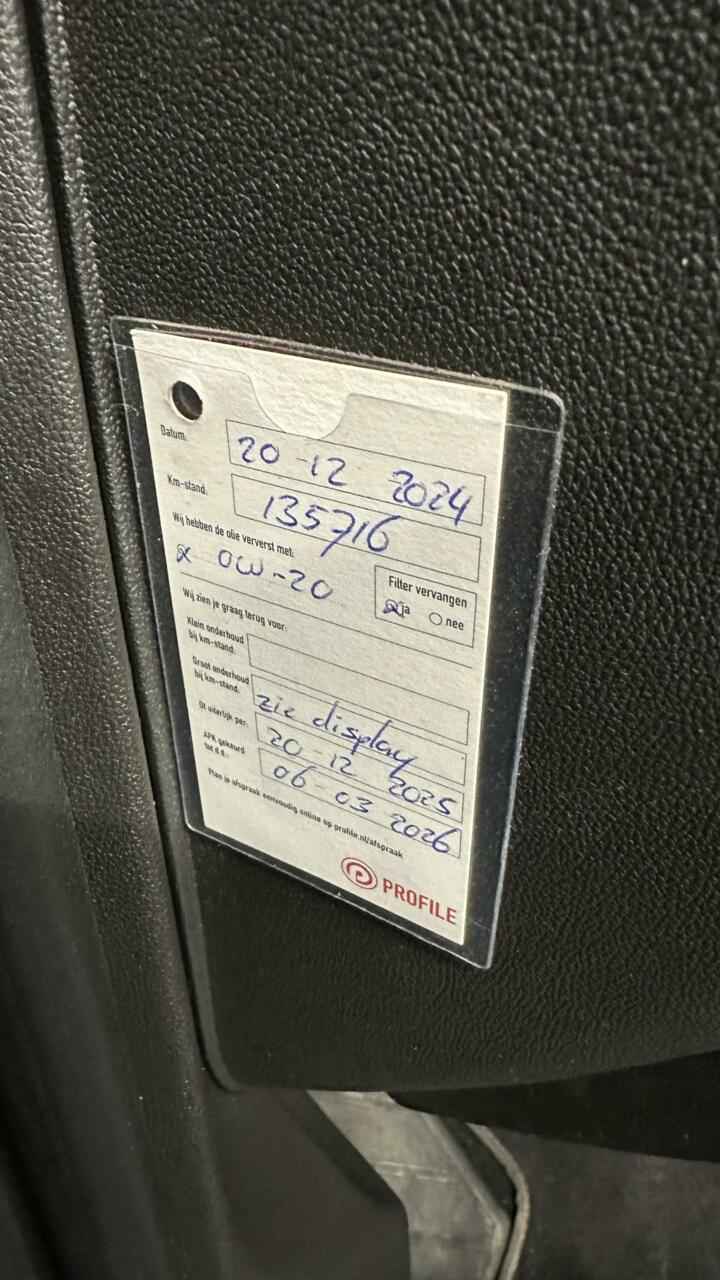 Datum. 20-12 2024
Km-stand. 135716
Wij hebben de olie ververst met:
0W-20
Filter vervangen
ja nee
Wij zien je graag terug voor:
Klein onderhoud
bij km-stand.
Groot onderhoud
bij km-stand. zie display
Of uiterlijk per: 20-12 2025
APK gekeurd
tot d.d.: 06-03 2026
Plan je afspraak eenvoudig online op profile.nl/afspraak
PROFILE